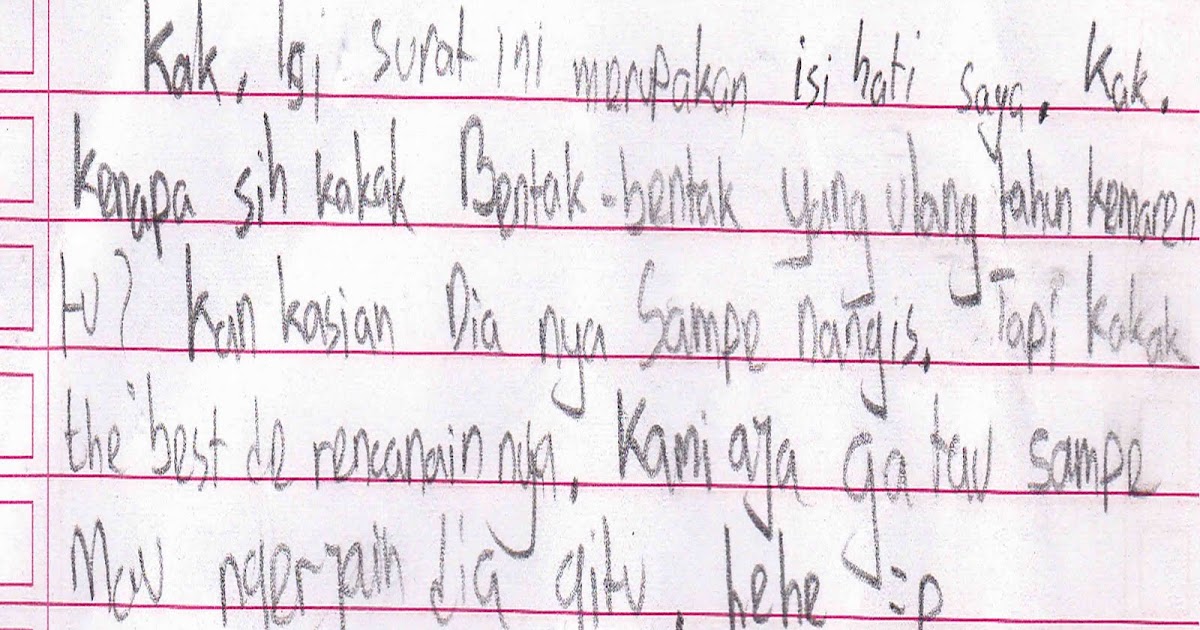 Kak, Igi surat ini merupakan isi hati saya. Kak,
Kenapa sih kakak Bentak-bentak yang ulang tahun kemaren
tu? Kan kasian Dia nya Sampe nangis. Tapi kakak
the best de rencanain nya. Kami aja ga tau sampe
Mau ngerjain dia gitu, hehe =p